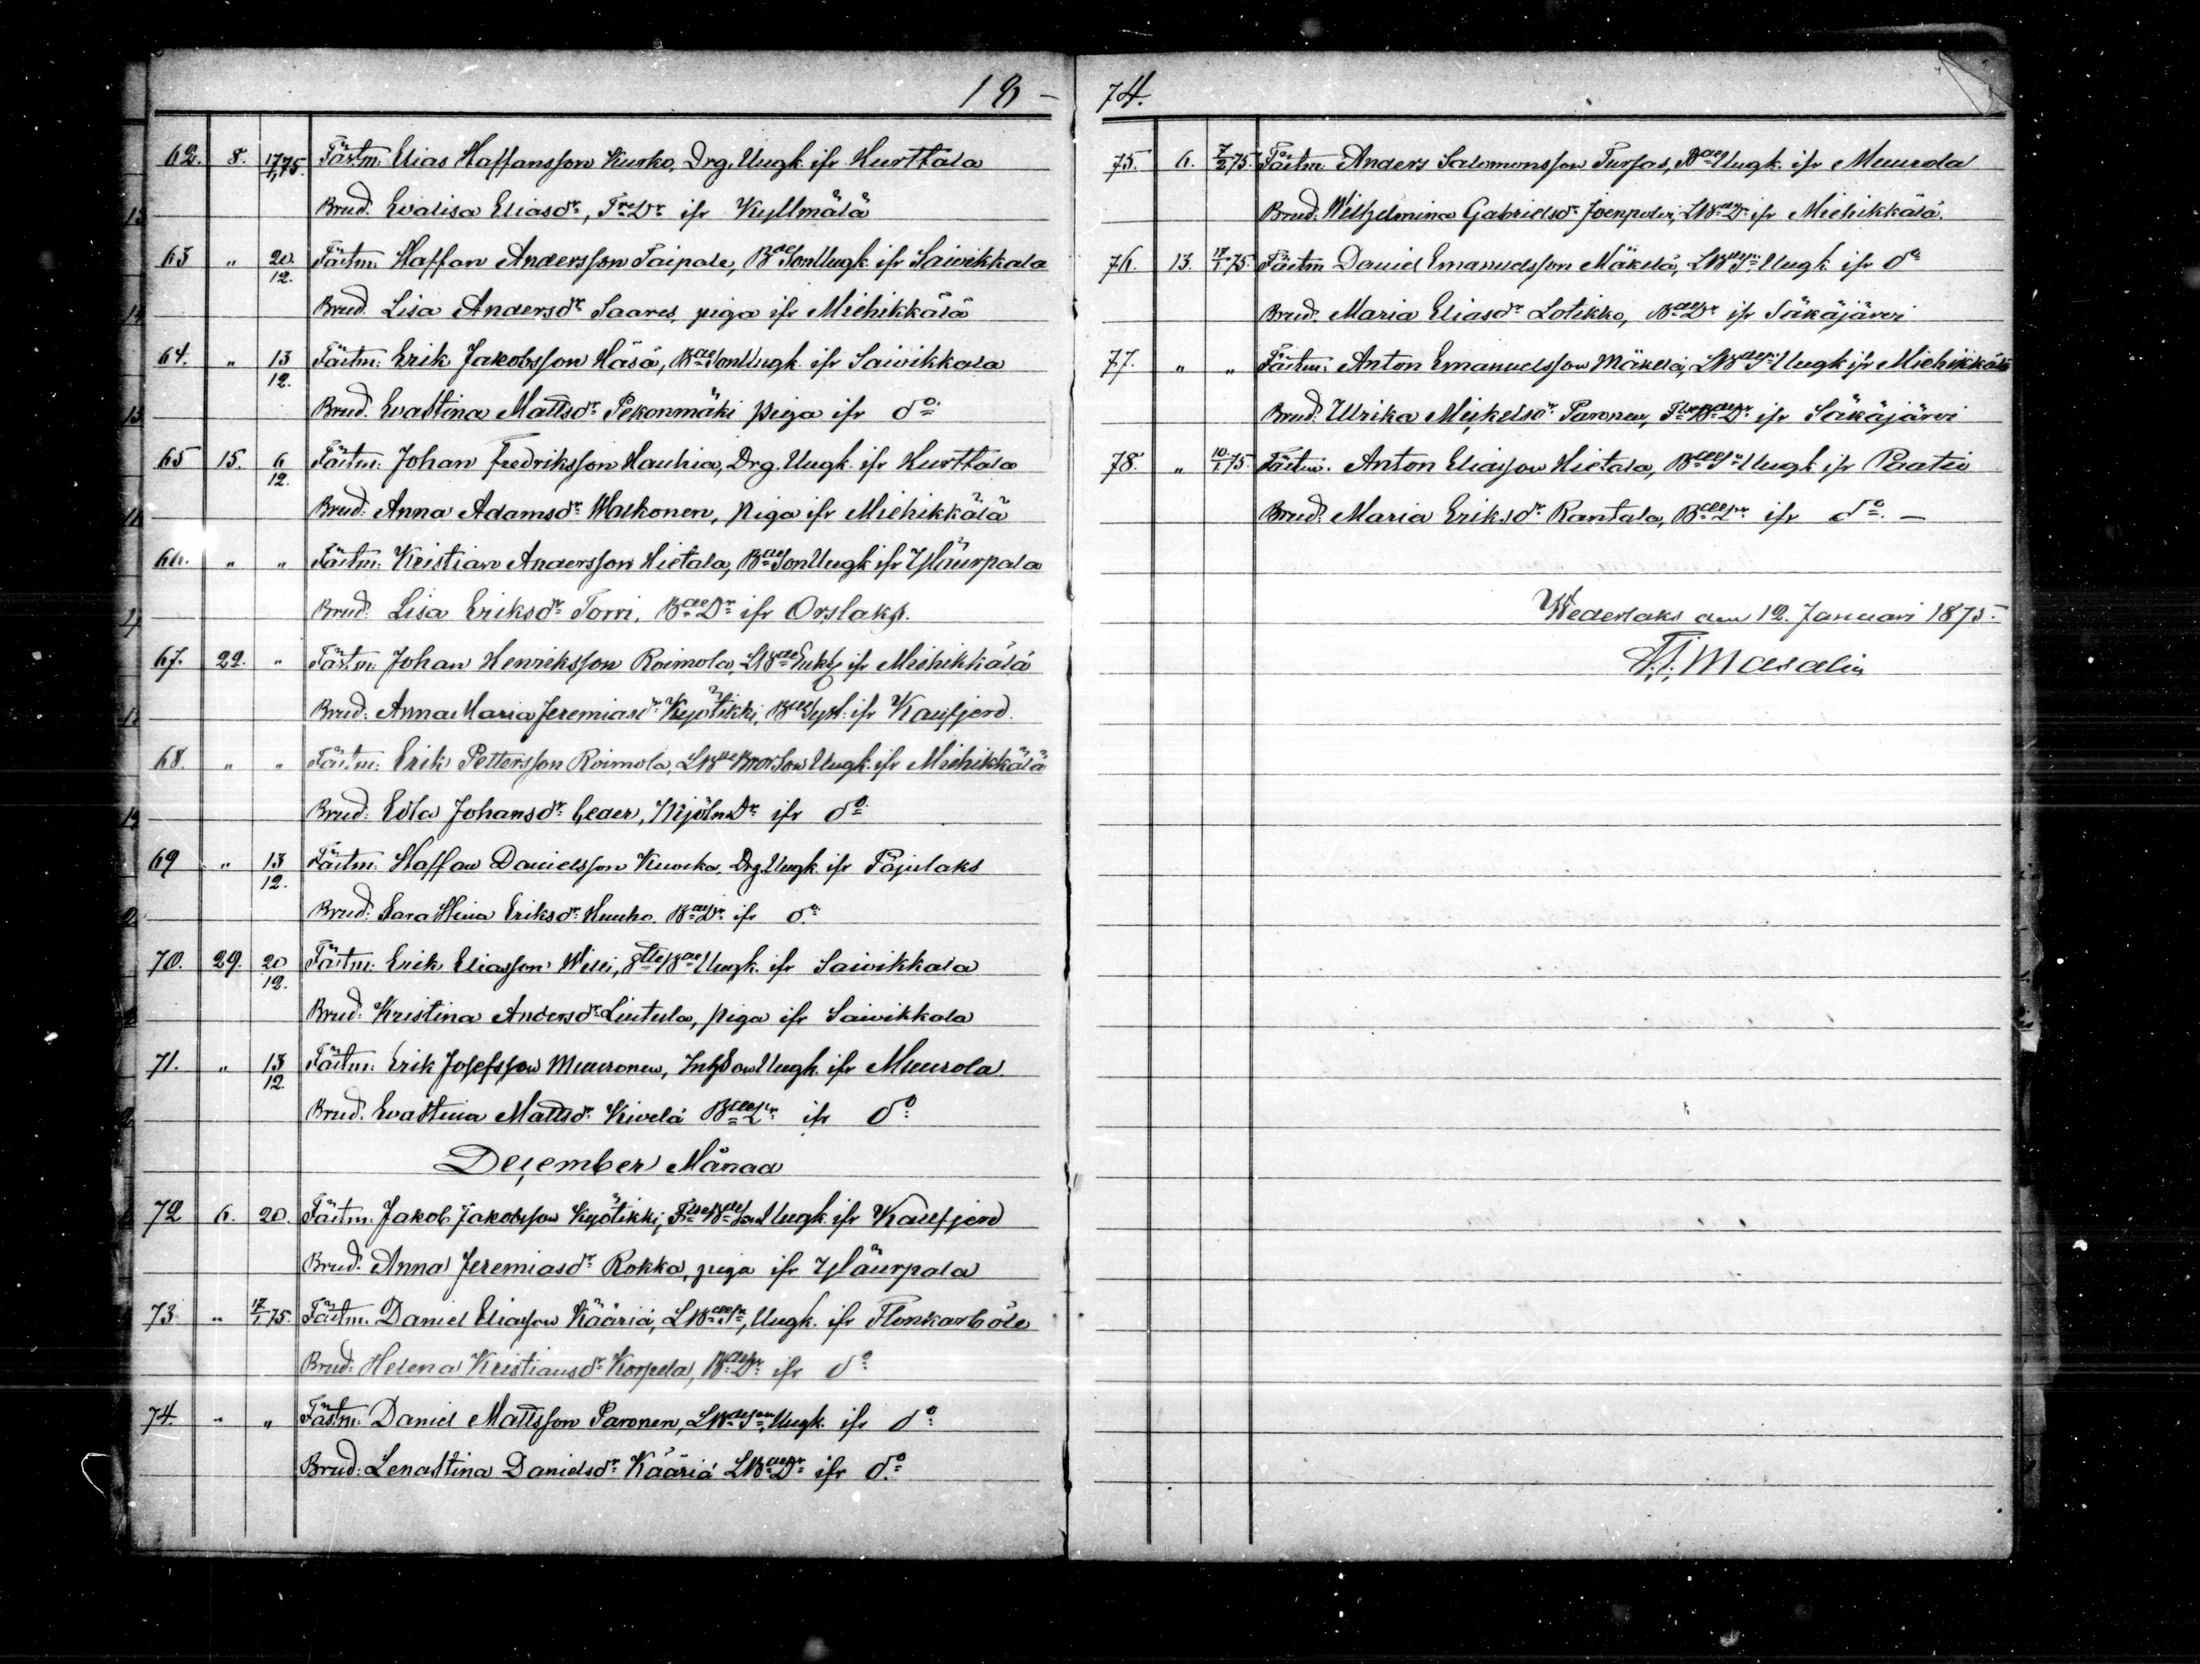 18-
62. 8. 17/1,75. Fästm: Elias Staffansson Kurko, Drg. Ungk. ifr Kurttala
Brud. Evalisa Eliasdr, ifr Kyllmälä
63 " 20/12. Fästm: Staffan Andersson Taipale, Bde Son Ungk ifr Saivikkala
Brud. Lisa Andersdr Saares, piga ifr Miehikkälä
64. " 13/12. Fästm: Erik Jakobsson Häsä, Bde Son Ungk. ifr Saivikkala
Brud. Evastina Mattsdr Pekonmäki piga ifr do
65 15. 6/12. Fästm: Johan Fredriksson Hauhia, Drg. Ungk. ifr Kurttala
Brud. Anna Adamsdr Waskonen, piga ifr Miehikkälä
66. " " Fästm: Kristian Andersson Hietala, Bde Son Ungk ifr Yläurpala
Brud. Lisa Eriksdr Torri, Bde Dr ifr Orslaks.
67. 22. " Fästm: Johan Henriksson Roimola, ifr Miehikkälä
Brud: Anna Maria Jeremiasdr Kyötikki, ifr Kaufjerd.
68. " " Fästm: Erik Pettersson Roimola, LBde Brorson Ungk. ifr Miehikkälä
Brud: Edla Johansdr Ceder, Mjöln Dr ifr do
69 " 13/12. Fästm: Staffan Danielsson Drg. Ungk. ifr Pajulaks
Brud: Sara Stina Eriksdr Bde Dr ifr do
70. 29. 20/12. Fästm: Erik Eliasson Ungk. ifr Saivikkala
Brud. Kristina Andersdr Lintula, piga ifr Saivikkala
71. " 13/12. Fästm: Erik Josefsson Muuronen, Inh Son Ungk. ifr Muurola.
Brud. Evastina Mattsdr Kivelä Bde Dr ifr do
December Månad
72 6. 20. Fästm: Jakob Jakobsson Kyötikki, Ungk. ifr Kaufjerd
Brud. Anna Jeremiasdr Rokka, piga ifr Yläurpala
73 " 17/1,75. Fästm. Daniel Eliasson Kääriä, LBde Sn, Ungk. ifr Flonkarböle
Brud: Helena Kristiansdr Korpela, Bde Dr ifr do
74. " " Fästm: Daniel Mattsson Paronen, LBde Son, Ungk. ifr do
Brud: Lenastina Danielsdr Kääriä LBde Dr ifr do
74.
75. 6. 7/2,75. Fästm: Anders Salomonsson Tursas, Bde Ungk. ifr Muurola
Brud: Wilhelmina Gabrielsdr Joenpolvi, LBde Dr ifr Miehikkälä.
76. 13. 17/1,75. Fästm Daniel Emanuelsson Mäkelä, LBde Sn Ungk ifr do
Brud. Maria Eliasdr Lotikko, Bde Dr ifr Säkäjärvi
77. " " Fästm: Anton Emanuelsson Mäkelä, LBde Sn Ungk ifr Miehikkälä
Brud: Ulrika Mickelsdr Paronen, ifr Säkäjärvi
78. " 10/1,75 Fästm. Anton Eliasson Hietala, Bde Sn Ungk ifr Paatio
Brud: Maria Eriksdr Rantala, Bde Dr ifr do. -
Wederlaks den 12. Januari 1875.
Masalin